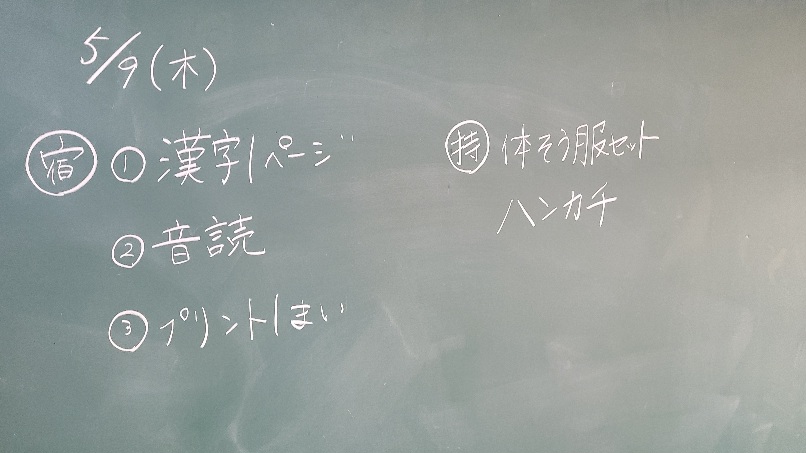 5/9(木)
宿 ① 漢字1ページ
② 音読
③ プリント1まい
持 体そう服セット
ハンカチ